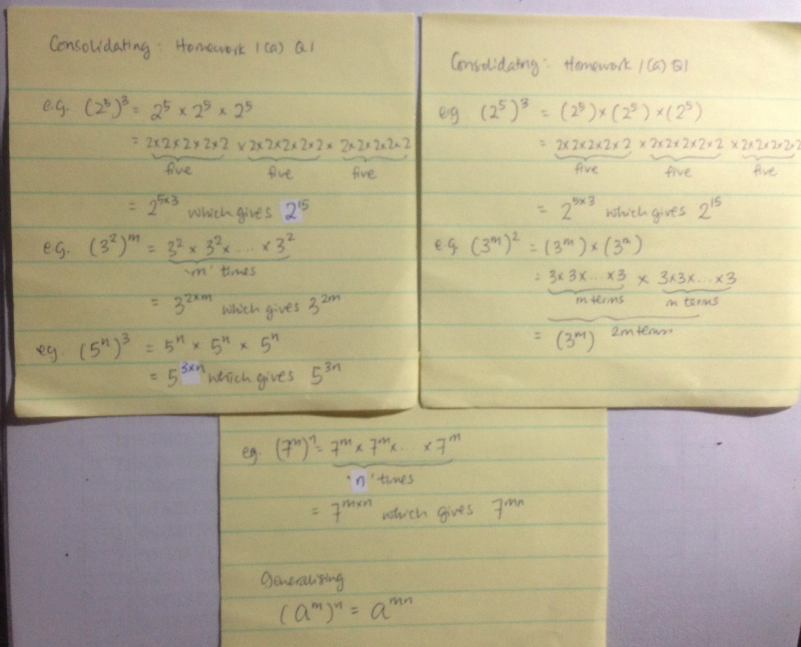 Consolidating: Homework 1(a) Q1
e.g. (2⁵)³ = 2⁵ × 2⁵ × 2⁵
= 2×2×2×2×2 × 2×2×2×2×2 × 2×2×2×2×2
five five five
= 2⁵ˣ³ which gives 2¹⁵
e.g. (3²)ᵐ = 3² × 3² × .... × 3²
'm' times
= 3²ˣᵐ which gives 3²ᵐ
eg. (5ⁿ)³ = 5ⁿ × 5ⁿ × 5ⁿ
= 5³ˣⁿ which gives 5³ⁿ
Consolidating: Homework 1(a) Q1
eg (2⁵)³ = (2⁵)×(2⁵)×(2⁵)
= 2×2×2×2×2 × 2×2×2×2×2 × 2×2×2×2×2
five five five
= 2⁵ˣ³ which gives 2¹⁵
e.g. (3ᵐ)² = (3ᵐ) × (3ᵐ)
= 3×3×...×3 × 3×3×...×3
m terms m terms
= (3ᵐ) 2m terms
eg. (7ᵐ)ⁿ = 7ᵐ × 7ᵐ × ... × 7ᵐ
'n' times
= 7ᵐˣⁿ which gives 7ᵐⁿ
Generalising
(aᵐ)ⁿ = aᵐⁿ